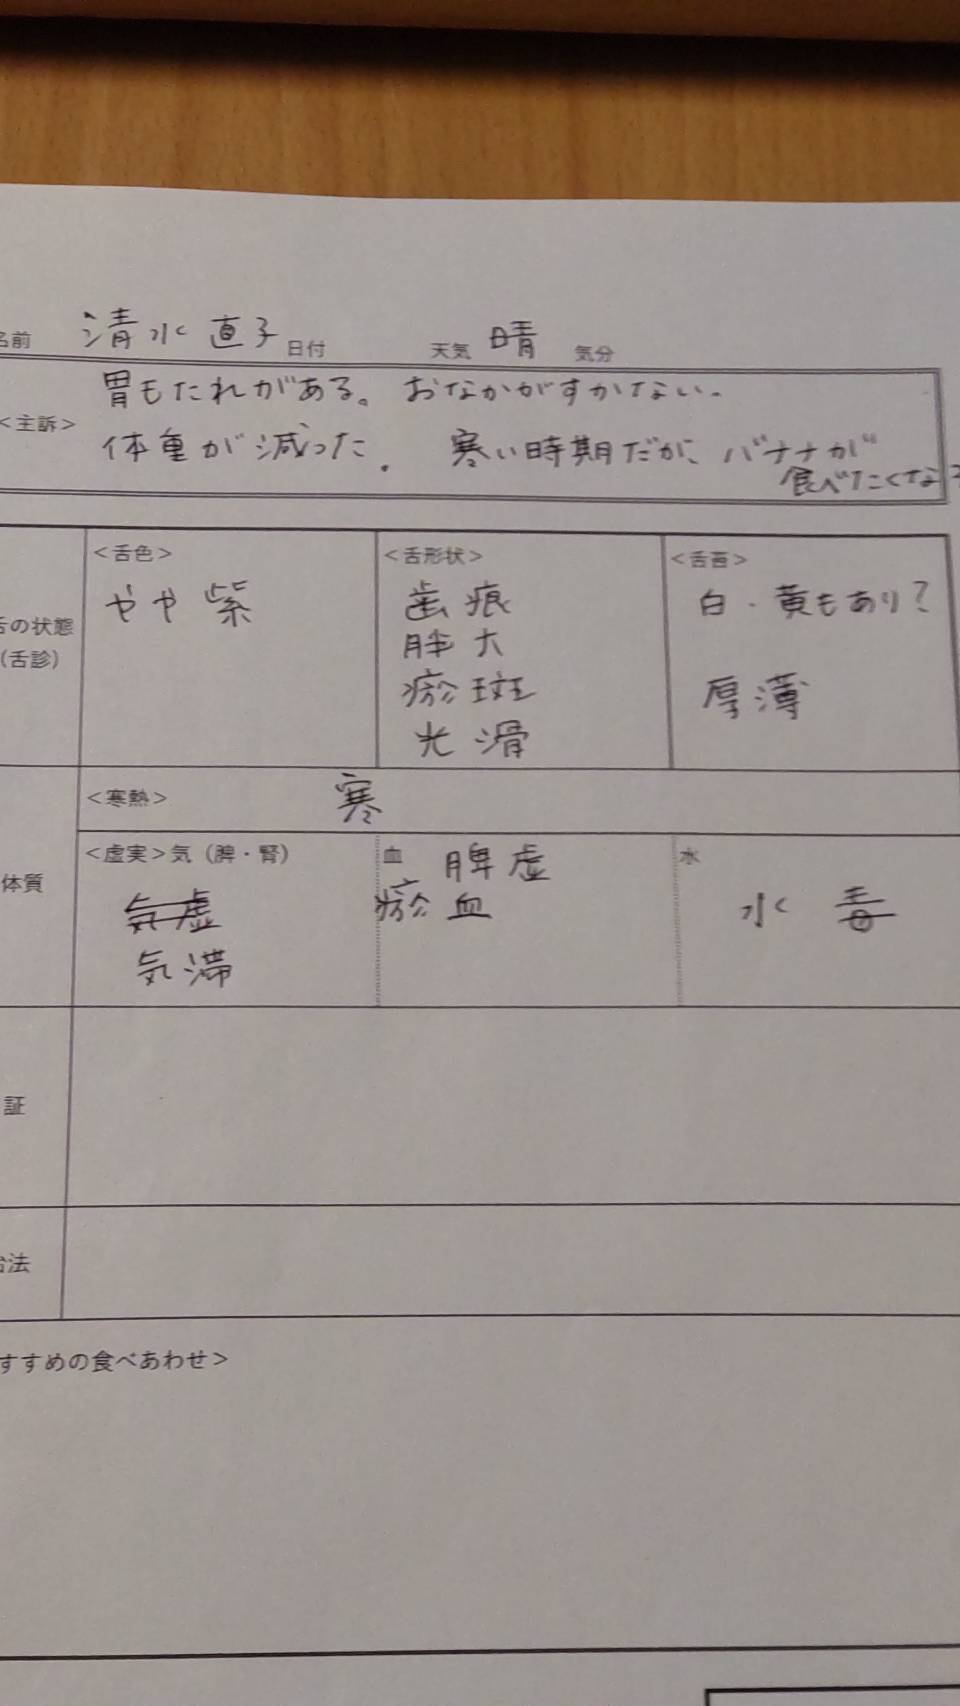 名前 清水 直子 日付 天気 晴 気分
<主訴>
胃もたれがある。 おなかがすかない。
体重が減った。 寒い時期だが、バナナが
食べたくなる
舌の状態
(舌診)
<舌色>
やや紫
<舌形状>
歯痕
胖大
瘀斑
光滑
<舌苔>
白・黄もあり?
厚薄
体質
<寒熱> 寒
<虚実>気(脾・腎)
気虚
気滞
血 脾虚
瘀血
水
水毒
証
治法
すすめの食べあわせ>